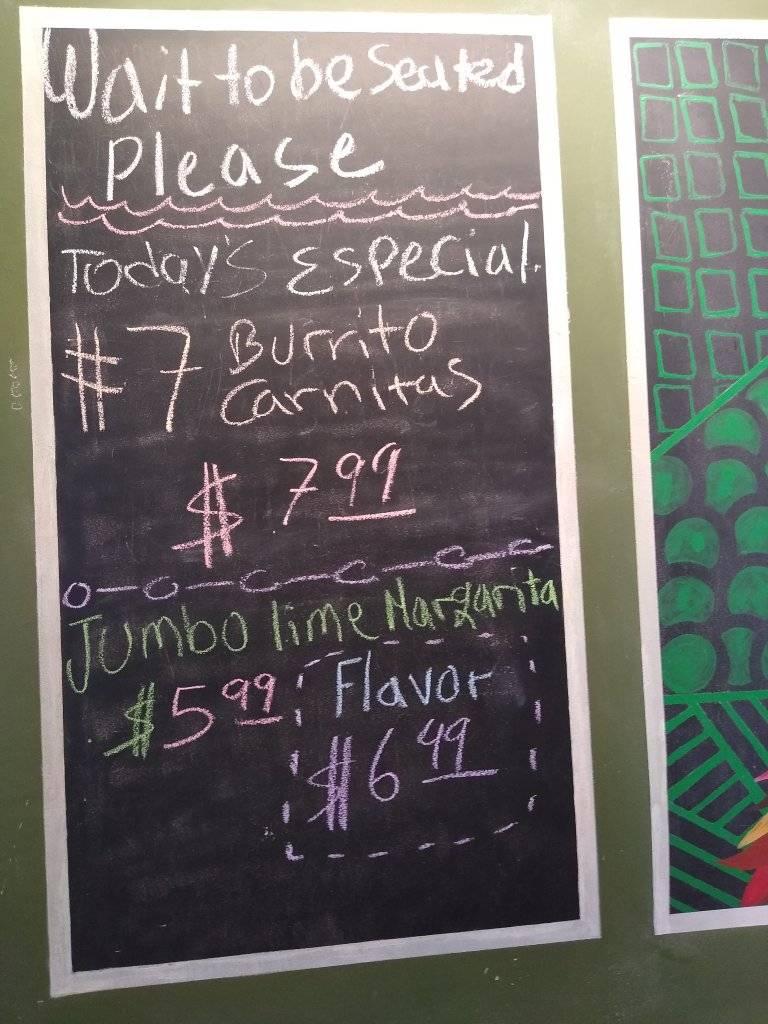 Wait to be Seated
Please
Today's Especial.
#7 Burrito
Carnitas
$ 7 99
Jumbo lime Margarita
$5 99
Flavor
$6 49